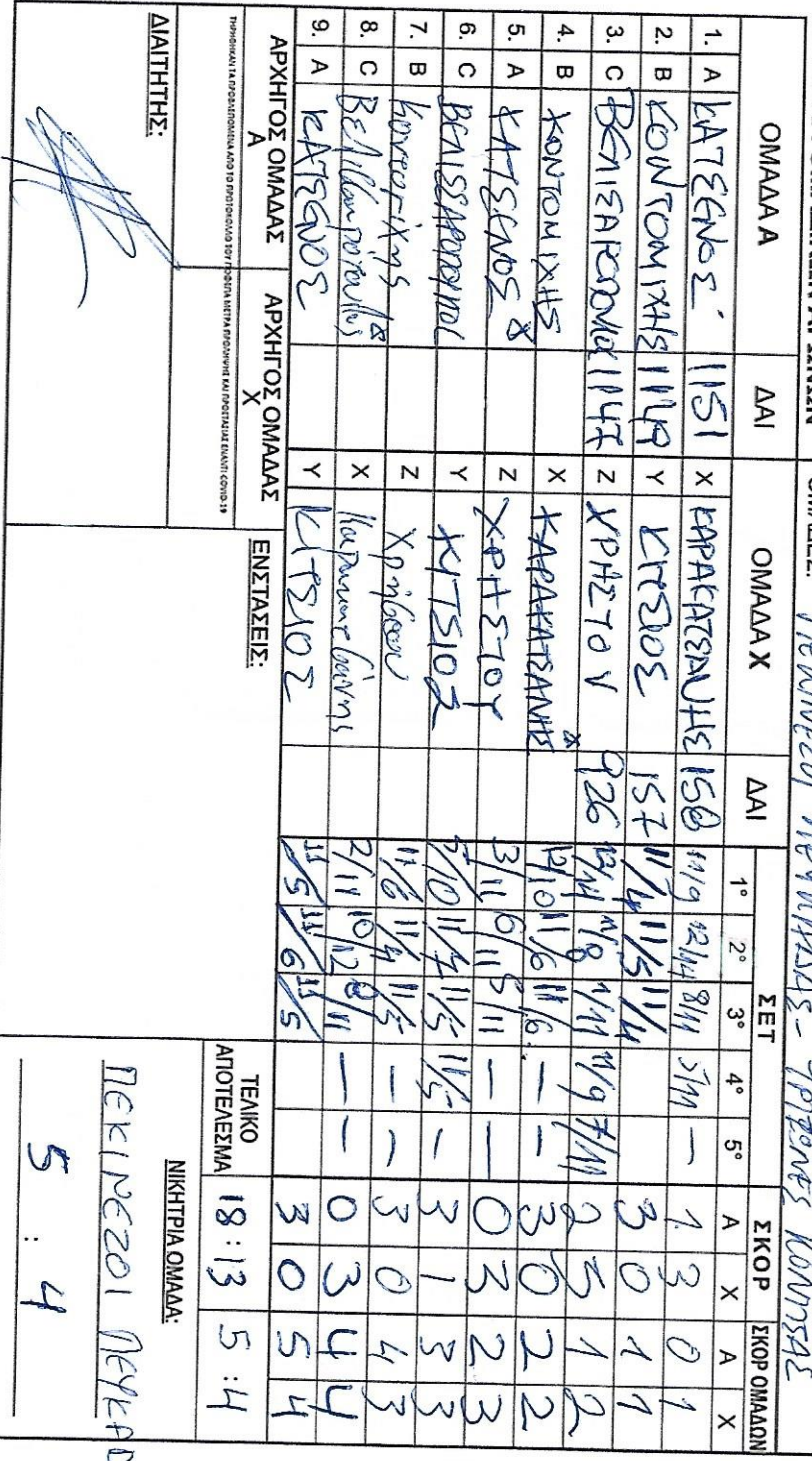 ΟΜΑΔΑ Α ΔΑΙ ΟΜΑΔΑ Χ ΔΑΙ ΣΕΤ ΣΚΟΡ ΣΚΟΡ ΟΜΑΔΩΝ
1° 2° 3° 4° 5° Α Χ Α Χ
1. A ΚΑΤΣΕΝΟΣ 1151 X ΚΑΡΑΚΑΤΣΑΝΗΣ 158 11/9 12/14 8/11 5/11 — 1 3 0 1
2. B ΚΟΝΤΟΜΙΧΗΣ 1149 Y ΚΙΤΣΙΟΣ 157 11/4 11/5 11/4 3 0 1 1
3. C ΒΕΛΙΣΑΡΟΠΟΥΛΟΣ 1147 Z ΧΡΗΣΤΟΥ 926 12/14 11/8 1/11 11/9 7/11 2 3 1 2
4. B ΚΟΝΤΟΜΙΧΗΣ X ΚΑΡΑΚΑΤΣΑΝΗΣ 12/10 11/6 11/6 — — 3 0 2 2
5. A ΚΑΤΣΕΝΟΣ Z ΧΡΗΣΤΟΥ 3/11 6/11 8/11 — — 0 3 2 3
6. C ΒΕΛΙΣΣΑΡΟΠΟΥΛΟΣ Y ΚΙΤΣΙΟΣ 11/7 11/5 11/5 — 3 1 3 3
7. B Κοντομίχης Z Χρήστου 11/6 11/9 11/5 — — 3 0 4 3
8. C Βελισσαρόπουλος X Καρακατσάνης 2/11 10/12 8/11 — — 0 3 4 4
9. A ΚΑΤΣΕΝΟΣ Y ΚΙΤΣΙΟΣ 11/5 11/6 11/5 3 0 5 4
ΑΡΧΗΓΟΣ ΟΜΑΔΑΣ Α ΑΡΧΗΓΟΣ ΟΜΑΔΑΣ Χ ΕΝΣΤΑΣΕΙΣ: ΤΕΛΙΚΟ ΑΠΟΤΕΛΕΣΜΑ 18:13 5:4
ΤΗΡΗΘΗΚΑΝ ΤΑ ΠΡΟΒΛΕΠΟΜΕΝΑ ΑΠΟ ΤΟ ΠΡΩΤΟΚΟΛΛΟ ΤΟΥ ΓΙΑ ΜΕΤΡΑ ΠΡΟΛΗΨΗΣ ΚΑΙ ΠΡΟΣΤΑΣΙΑΣ ΕΝΑΝΤΙ COVID-19
ΔΙΑΙΤΗΤΗΣ: ΝΙΚΗΤΡΙΑ ΟΜΑΔΑ:
ΠΕΚΙΝΕΖΟΙ ΠΕΥΚΑ
5 : 4